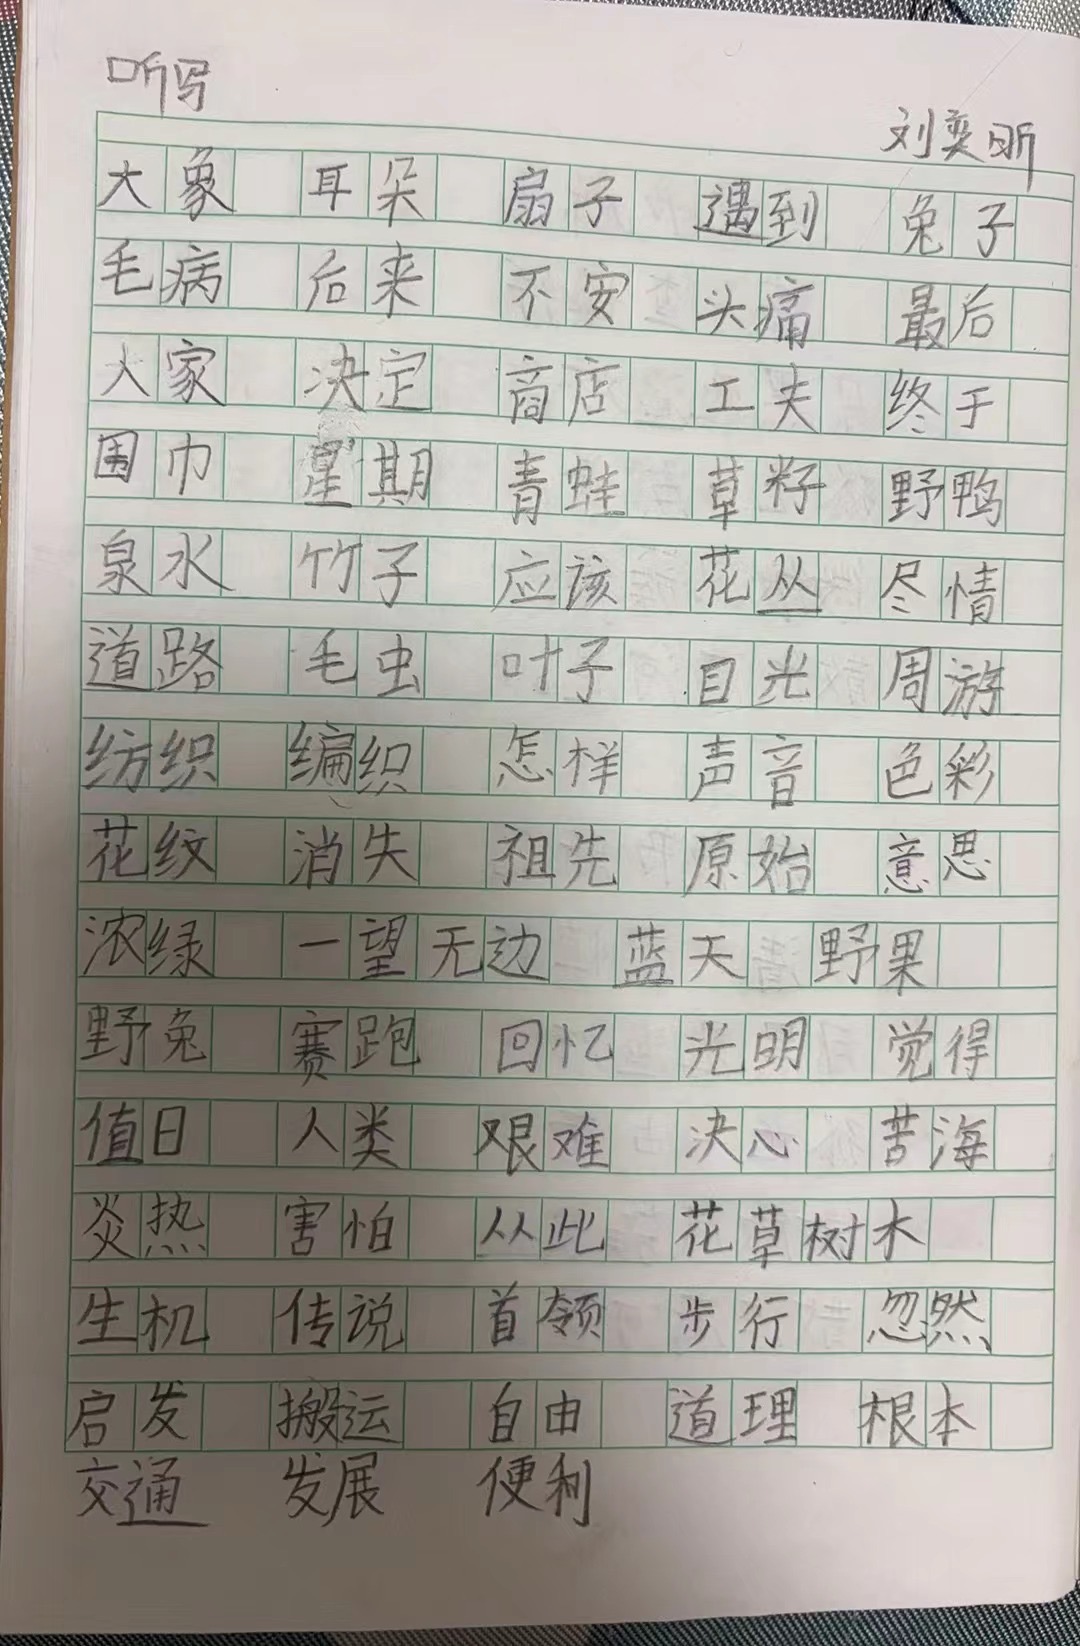 听写
刘奕昕
大象 耳朵 扇子 遇到 兔子
毛病 后来 不安 头痛 最后
大家 决定 商店 工夫 终于
围巾 星期 青蛙 草籽 野鸭
泉水 竹子 应该 花丛 尽情
道路 毛虫 叶子 目光 周游
纺织 编织 怎样 声音 色彩
花纹 消失 祖先 原始 意思
浓绿 一望无边 蓝天 野果
野兔 赛跑 回忆 光明 觉得
值日 人类 艰难 决心 苦海
炎热 害怕 从此 花草树木
生机 传说 首领 步行 忽然
启发 搬运 自由 道理 根本
交通 发展 便利